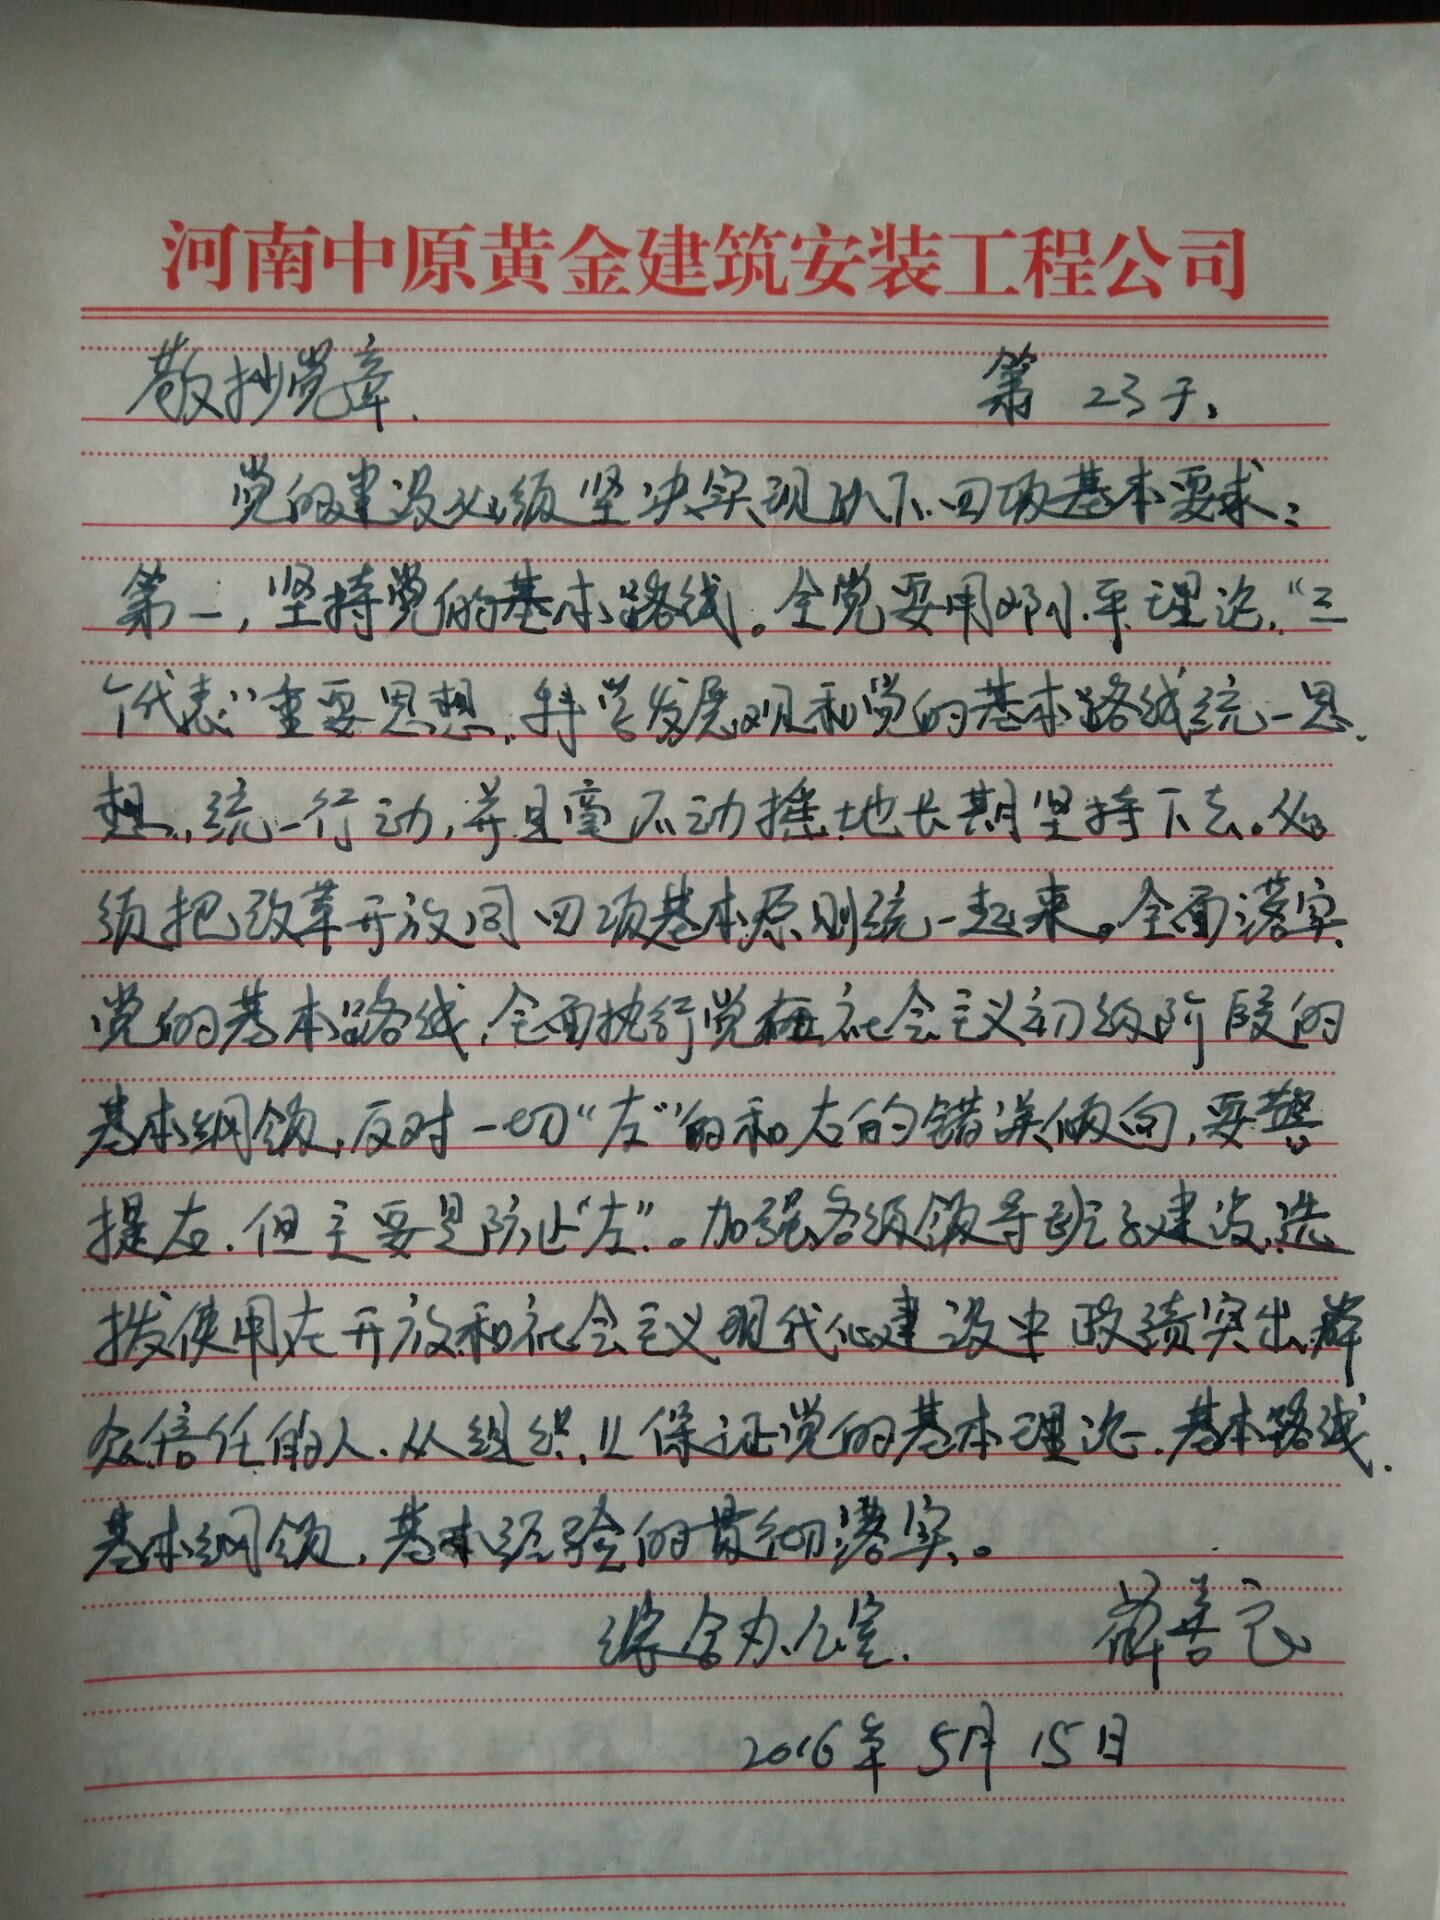 河南中原黄金建筑安装工程公司
敬抄党章. 第23天.
党的建设必须坚决实现以下四项基本要求:
第一,坚持党的基本路线。全党要用邓小平理论、“三
个代表”重要思想、科学发展观和党的基本路线统一思
想,统一行动,并且毫不动摇地长期坚持下去。必
须把改革开放同四项基本原则统一起来。全面落实
党的基本路线,全面执行党在社会主义初级阶段的
基本纲领,反对一切“左”的和右的错误倾向,要警
提右,但主要是防止“左”。加强各级领导班子建设,选
拨使用在开放和社会主义现代化建设中政绩突出群
众信任的人,从组织上保证党的基本理论、基本路线、
基本纲领、基本经验的贯彻落实。
综合办公室. 薛善
2016年5月15日